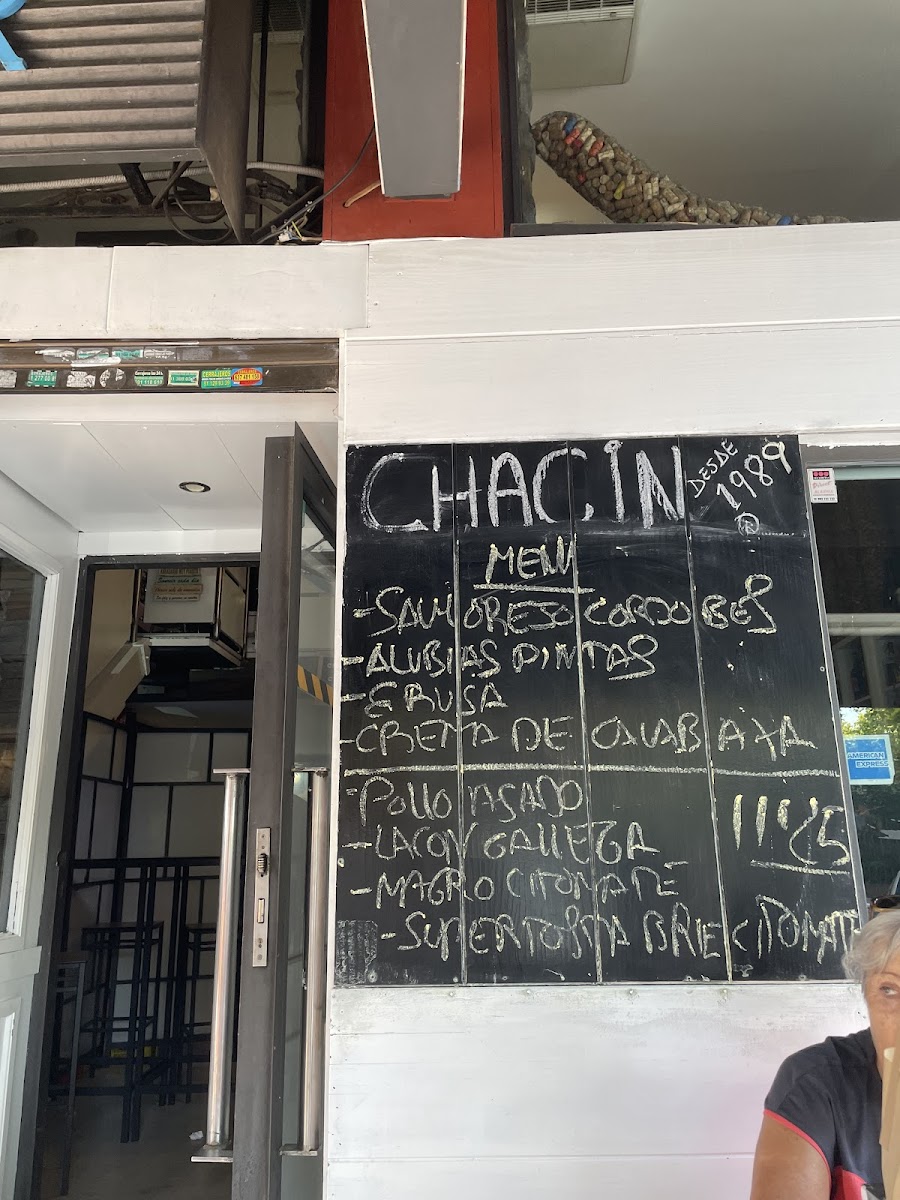 CHACÍN DESDE 1989
®
MENU
-SALMOREJO CORDOBES
-ALUBIAS PINTAS
-ERUSA
-CREMA DE CALABAZA
-POLLO ASADO
11'25
-LACON GALLEGA
-MAGRO C TOMATE
-SUPERTOSTA BRIE C TOMATE
CERRAJEROS
AMERICAN
EXPRESS